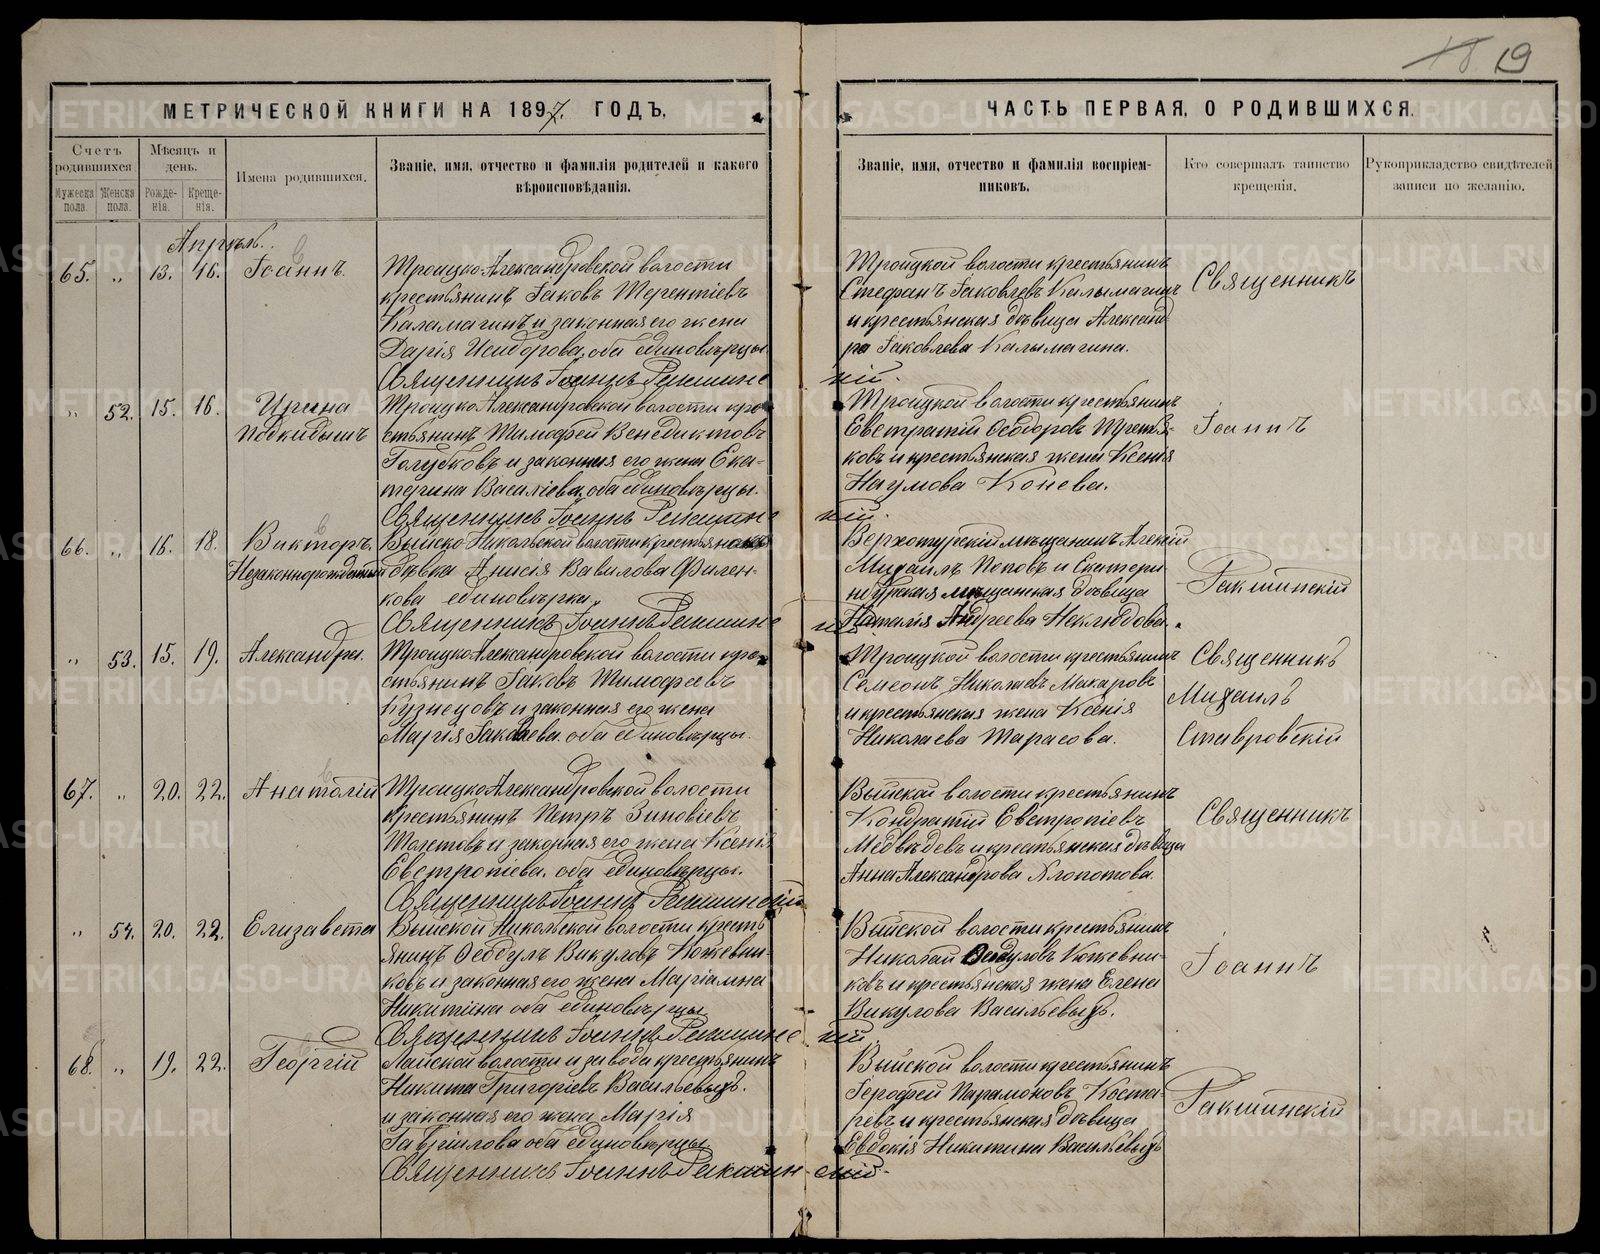 19
МЕТРИЧЕСКОЙ КНИГИ НА 1897. ГОДЪ,
Счетъ родившихся.
Мужеска пола.
Женска пола.
Мѣсяцъ и день.
Рожде-
нія.
Креще-
нія.
Имена родившихся.
Званіе, имя, отчество и фамилія родителей и какого
вѣроисповѣданія.
Апрѣль.
65. „ 13. 16. Іоаннъ
Троицко-Александровской волости
крестьянинъ Іаковъ Терентіевъ
Каламагинъ и законная его жена
Дарія Исидорова, оба единовѣрцы.
Священникъ Іоаннъ
„ 52. 15. 16. Ирина
подкидышъ
Троицко-Александровской волости кре-
стьянинъ Тимофей Венедиктовъ
Голубковъ и законная его жена Ека-
терина Васаліева, оба единовѣрцы.
Священникъ Іоаннъ
66. „ 16. 18. Викторъ.
Незаконнорожденный
Выйско-Никольской волости крестьянская
дѣвка Анисія Вавилова Филен-
кова единовѣрка.
Священникъ Іоаннъ
„ 53. 15. 19. Александра.
Троицко-Александровской волости кре-
стьянинъ Іаковъ Тимофеевъ
Кузнецовъ и законная его жена
Марія Іаковлева, оба единовѣрцы.
67. „ 20. 22. Анатолій
Троицко-Александровской волости
крестьянинъ Петръ Зиновіевъ
Толстовъ и законная его жена Ксенія
Евстропіева, оба единовѣрцы.
Священникъ Іоаннъ
„ 54. 20. 22. Елизавета
Выйской Никольской волости кресть
янинъ Ѳеодулъ Викуловъ Кожевни-
ковъ и законная его жена Маріамна
Никитина оба единовѣрцы
Священникъ Іоаннъ
68. „ 19. 22. Георгій
Лайской волости и завода крестьянинъ
Никита Григоріевъ Васильевыхъ.
и законная его жена Марія
Гавріилова оба единовѣрцы
Священникъ Іоаннъ
ЧАСТЬ ПЕРВАЯ, О РОДИВШИХСЯ.
Званіе, имя, отчество и фамилія воспріем-
никовъ.
Кто совершалъ таинство
крещенія.
Рукоприкладство свидѣтелей
записи по желанію.
Троицкой волости крестьянинъ
Стефанъ Іаковлевъ Калымагинъ
и крестьянская дѣвица Александ
ра Іаковлева Калымагина.
Священникъ
Троицкой волости крестьянинъ
Евстратій Ѳеодоровъ Третья-
ковъ и крестьянская жена Ксенія
Наумова Конева.
Іоаннъ
Верхотурскій мѣщанинъ Алексій
Михаилъ Поповъ и Екатерин
нбургская мѣщанская дѣвица
Наталія Андреева Неклюдова.
Ракшинскій
Троицкой волости крестьянинъ
Семеонъ Николаевъ Макаровъ
и крестьянская жена Ксенія
Николаева Тарасова.
Священникъ
Михаилъ
Ставровскій
Выйской волости крестьянинъ
Кондратій Евстропіевъ
Медвѣдевъ и крестьянская дѣвица
Анна Александрова Хлопотова.
Священникъ
Выйской волости крестьянинъ
Николай Ѳеодуловъ Кожевни-
ковъ и крестьянская жена Елена
Викулова Васильевыхъ.
Іоаннъ
Выйской волости крестьянинъ
Іерофей Парамоновъ Коста-
ревъ и крестьянская дѣвица
Евдокія Никитина Васильевыхъ
Ракшинскій